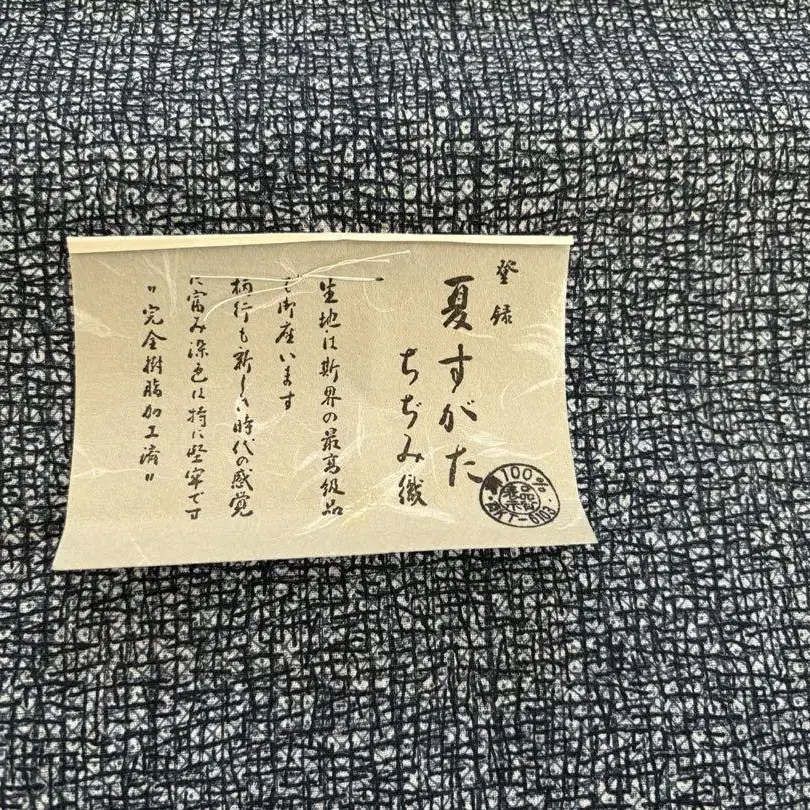 登録
夏すがた
ちぢみ織
生地は斯界の最高級品
で御座います
柄行も新しい時代の感覚
に富み染色は特に堅牢です
"完全樹脂加工済"
100%
品